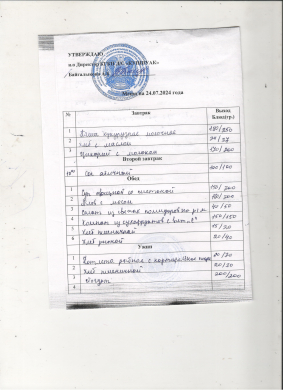 УТВЕРЖДАЮ
Меню на 24.07.2024 года
№ Завтрак Выход Блюд(гр.)
1 Каша кукурузная молочная 180/250
2 Хлеб с маслом
3 с молоком
Второй завтрак
10⁰⁰ Сок яблочный 100/120
Обед
1 Суп овощной со сметаной 150/200
2 Плов с мясом 150/200
3 Салат из свежих помидоров 40/50
4 Компот из сухофруктов с вит. "С" 150/150
5 Хлеб пшеничный 15/20
6 Хлеб ржаной 20/40
Ужин
1 Котлета рыбная с картофельным
2 Хлеб пшеничный 20/20
3 Йогурт 200/200
4